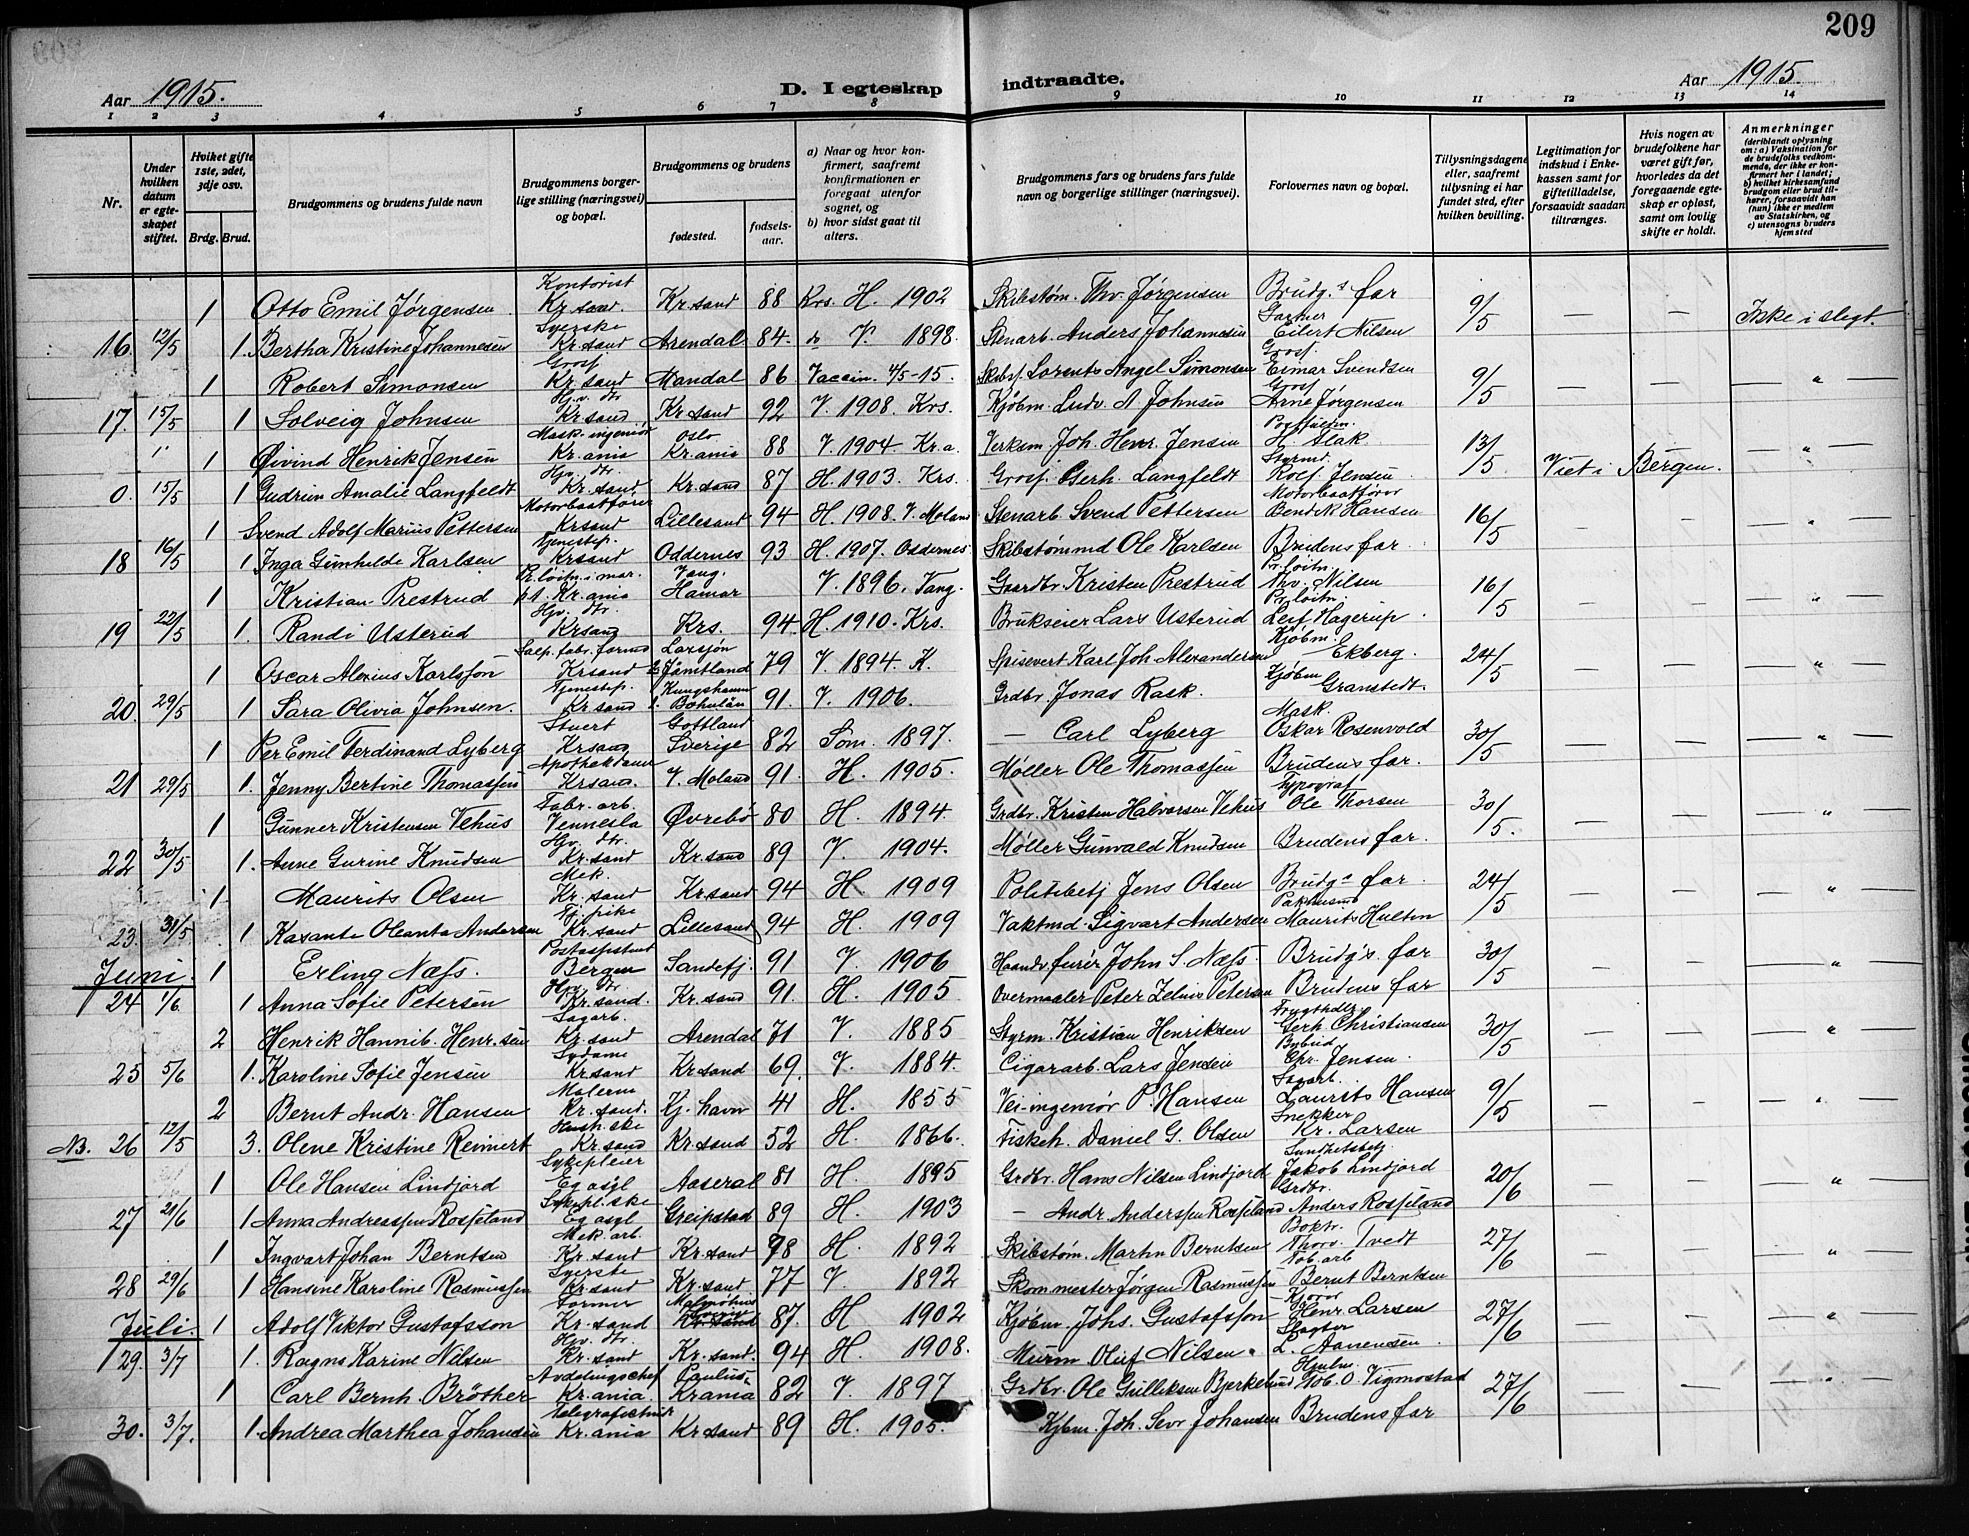 209
Aar 1915.
D. I egteskap indtraadte.
Aar 1915.
1 2 3 4 5 6 7 8 9 10 11 12 13 14
Nr.
Under hvilken datum er egteskapet stiftet.
Hvilket gifte 1ste, 2det, 3dje osv.
Brdg. Brud.
Brudgommens og brudens fulde navn
Brudgommens borgerlige stilling (næringsvei) og bopæl.
Brudgommens og brudens
fødested.
fødselsaar.
a) Naar og hvor konfirmert, saafremt konfirmationen er foregaat utenfor sognet, og
b) hvor sidst gaat til alters.
Brudgommens fars og brudens fars fulde navn og borgerlige stillinger (næringsvei).
Forlovernes navn og bopæl.
Tillysningsdagene eller, saafremt tillysning ei har fundet sted, efter hvilken bevilling.
Legitimation for indskud i Enkekassen samt for giftetilladelse, forsaavidt saadan tiltrænges.
Hvis nogen av brudefolkene har været gift før, hvorledes da det foregaaende egteskap er opløst, samt om lovlig skifte er holdt.
Anmerkninger (deriblandt oplysning om: a) Vaksination for de brudefolks vedkommende, der ikke er konfirmert her i landet; b) hvilket kirkesamfund brudgom eller brud tilhører, forsaavidt han (hun) ikke er medlem av Statskirken, og c) utensogns bruders hjemsted
1 Otto Emil Jørgensen Kontorist Kr.sand. Kr.sand 88 Krs. H. 1902 Skibstøm. Thv. Jørgensen Brudg.s far 9/5 — — Ikke i slegt.
16. 12/5 1. Bertha Kristine Johannesen Syerske Kr.sand Arendal 84. do V. 1898. Stenarb. Anders Johannesen Gartner Eilert Nilsen
1 Robert Simonsen Grosf. Kr.sand Mandal 86 Vaccin. 4/5-15. Skibsf. Lorents Angel Simonsen Grosf. Eimar Svendsen 9/5 — — — „ —
17. 15/5 1 Solveig Johnsen Hjv. dtr Kr.sand Kr.sand 92 V. 1908. Krs. Kjøbm. Ludv. A Johnsen Grosf Arne Jørgensen
1 Øivind Henrik Jensen Mask.ingeniør Kr.ania Oslo Kr.ania 88 V. 1904. Kr.a. Verksm. Joh. Henr. Jensen Postfuldm. H. Flak 13/5 Viet i Bergen. — „ —
0. 15/5 1 Gudrun Amalie Langfeldt Hjv. dtr. Kr.sand Kr.sand 87 H. 1903. Krs. Grosf. Gerh. Langfeldt Styrmd. Rolf Jensen
1 Svend Adolf Marius Pettersen Motorbaatfører Krsand Lillesand 94 H. 1908. V. Moland Stenarb. Svend Pettersen Motorbaatfører Bendik Hansen 16/5 — — — „ —
18 16/5 1 Inga Gunhilde Karlsen Tjenestep. Krsand Oddernes 93 H. 1907. Oddernes Skibstømmd Ole Karlsen Brudens far.
1 Kristian Prestrud Pr.løitn. i mar. p.t. Kr.ania Vang. Hamar V. 1896. Vang. Gaardbr. Kristen Prestrud Pr.løitn. Thv. Nilsen 16/5 — — — „ —
19 22/5 1. Randi Usterud Hjv. dtr. Krsand Krs. 94. H. 1910. Krs. Brukseier Lars Usterud Pr.løitn. Leif Hagerup
1 Oscar Alexius Karlsson Salp.fabr.formd Krsand Larsjøn Jämtland 79 V. 1894 K. Spisevert Karl Joh. Alexandersen Kjøbm. Ekberg. 24/5 — — — „ —
20. 29/5 1 Sara Olivia Johnsen. Tjenestep. Kr.sand Kungshamn Bohulän 91. V. 1906. Grdbr. Jonas Rask. Kjøbm Granstedt.
1 Per Emil Ferdinand Lyberg Stuert Krsand Gottland Sverige 82 Som. 1897. — Carl Lyberg Mask. Oskar Rosenvold 30/5 — — — „ —
21 29/5 1. Jenny Bertine Thomassen Apothekdame Krsand. V. Moland 91. H. 1905. Møller Ole Thomassen Brudens far.
1 Gunner Kristensen Vehus Fabr. arb. Vennesla Øvrebø 80 H. 1894. Grdbr. Kristen Halvorsen Vehus Typograf Ole Thorsen 30/5. — — — „ —
22 30/5 1. Anne Gurine Knudsen Hjv. dtr. Kr.sand Kr.sand 89 V. 1904. Møller Gunvald Knudsen Brudens far.
1. Maurits Olsen Mek. Kr.sand Krsand 94 H. 1909 Politibetj Jens Olsen Brudg.s far. 24/5 — — — „ —
23. 31/5 1 Kasante Oleanta Andersen Tj.pike Kr.sand Lillesand 94 H. 1909 Vaktmd. Sigvart Andersen Pakhusmd Maurits Hultin
Juni. 1 Erling Næss. Postassistent Bergen Sandefj. 91 V. 1906 Haandv.furér John S. Næss. Brudg's far 30/5 — — — „ —
24 1/6. 1 Anna Sofie Petersen Hjv. dtr Kr.sand. Kr.sand 91. H. 1905. Overmaaler Peter Zelius Petersen Brudens far
2 Henrik Hannib. Henr.sen Sagarb. Kr.sand Arendal 71 V. 1885 Styrm. Kristian Henriksen Frugthdlr. Gerh. Christiansen 30/5 — — — „ —
25 5/6 1. Karoline Sofie Jensen Sydame Kr.sand Kr.sand 69. V. 1884. Cigararb. Lars Jensen Bybud Chr. Jensen.
2 Bernt Andr. Hansen Malerm Kr.sand. Kj.havn 41 H. 1855 Vei-ingeniør P. Hansen Sagarb. Laurits Hansen 9/5 — — — „ —
NB. 26 12/5 3. Olene Kristine Reinert Hush.ske Kr.sand Kr.sand 52 H. 1866. Fiskeh. Daniel G. Olsen Snekker Kr. Larsen
1 Ole Hansen Lindjord Sykepleier Eg asyl Aaseral 81 H. 1895 Grdbr. Hans Nilsen Lindjord Sundhetsbetj Jakob Lindjord 20/6 — — — „ —
27 21/6 1 Anna Andreassen Rosseland Sykepl.ske Eg asyl Greipstad 89 H. 1903 — Andr. Anderssen Rosseland Grdbr. Anders Rosseland
1 Ingvart Johan Berntsen Mek. arb. Kr.sand Kr.sand 78 H. 1892 Skibstøm. Martin Berntsen Boktr. Thorv. Tvedt 27/6 — — — „ —
28 29/6 1 Hansine Karoline Rasmussen Syerske Kr.sand Kr.sand. 77 V. 1892 Skommester Jørgen Rasmussen Tob.arb Bernt Berntsen
Juli. 1 Adolf Viktor Gustafsson Former Kr.sand Malmøhus Sverige Kr.sand 87. H 1902 Kjøbm. Johs. Gustafsson Henr. Larsen 27/6 — — — „ —
29. 3/7 1. Ragna Karine Nilsen Hjv. dtr. Kr.sand Kr.sand. 94 H. 1908. Murm Oluf Nilsen. Slagter L. Aanensen.
1 Carl Bernh. Brøther Avdelingschef Kr.ania Paulus. Krania 82 V. 1897 Grdbr. Ole Gulliksen Bjerkelund Tob. O. Vigmostad 27/6 — — — „ —
30. 3/7. 1. Andrea Marthea Johansen Telegrafistinde Kr.ania Kr.sand 89 H. 1905. Kjbm. Joh. Sevr Johansen Brudens far